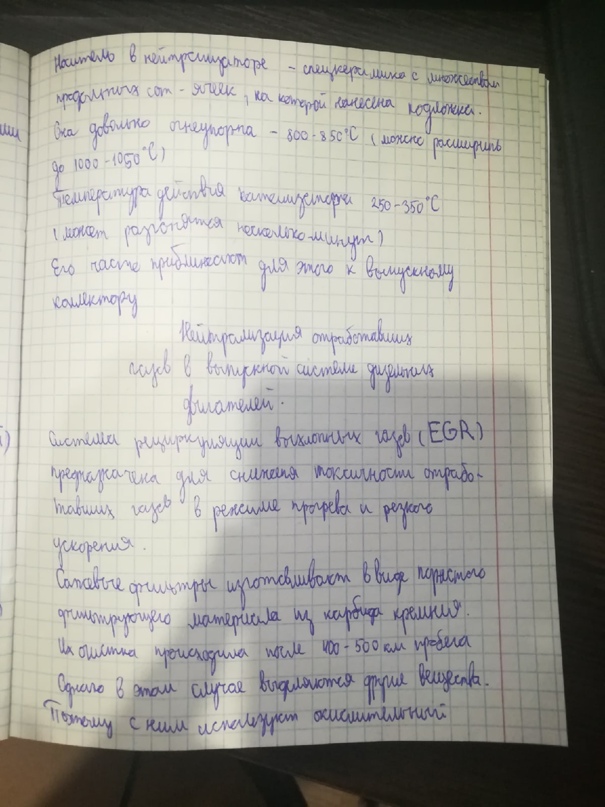 Носитель в нейтрализаторе - спецкерамика с множеством
продольных сот - ячеек, на которой нанесена подложка.
Она довольно огнеупорна - 800-850°C (можно расширить
до 1000-1050°C)
Температура действия катализатора 250-350°C
(может разгонятся несколько минут)
Его часто приближают для этого к выпускному
коллектору
Нейтрализация отработавших
газов в выпускной системе дизельных
двигателей.
Система рециркуляции выхлопных газов (EGR)
предназначена для снижения токсичности отрабо-
тавших газов в режиме прогрева и резкого
ускорения.
Сажевые фильтры изготавливают в виде пористого
фильтрующего материала из карбида кремния.
Их очистка происходила после 400-500 км пробега
Однако в этом случае выделяются другие вещества.
Поэтому с ним используют окислительный